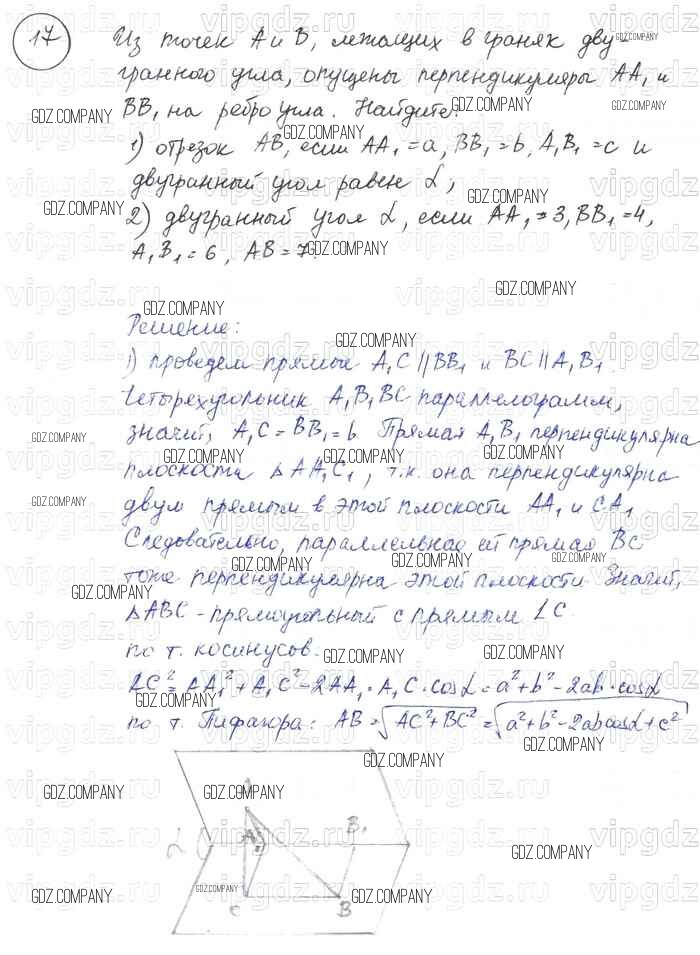 17
Из точек A и B, лежащих в гранях дву-
гранного угла, опущены перпендикуляры AA₁ и
BB₁ на ребро угла. Найдите:
1) отрезок AB, если AA₁=a, BB₁=b, A₁B₁=c и
двугранный угол равен α;
2) двугранный угол α, если AA₁=3, BB₁=4,
A₁B₁=6, AB=7.
Решение:
1) проведем прямые A₁C∥BB₁ и BC∥A₁B₁.
Четырехугольник A₁B₁BC параллелограмм,
значит, A₁C=BB₁=b. Прямая A₁B₁ перпендикулярна
плоскости △AA₁C₁, т.к. она перпендикулярна
двум прямым в этой плоскости AA₁ и CA₁
Следовательно, параллельная ей прямая BC
тоже перпендикулярна этой плоскости. Значит,
△ABC - прямоугольный с прямым ∠C.
по т. косинусов.
AC²=AA₁²+A₁C²-2AA₁·A₁C·cosα=a²+b²-2ab·cosα
по т. Пифагора: AB=√AC²+BC²=√a²+b²-2abcosα+c²
α A₁ B₁
C B
GDZ.COMPANY
vipgdz.ru